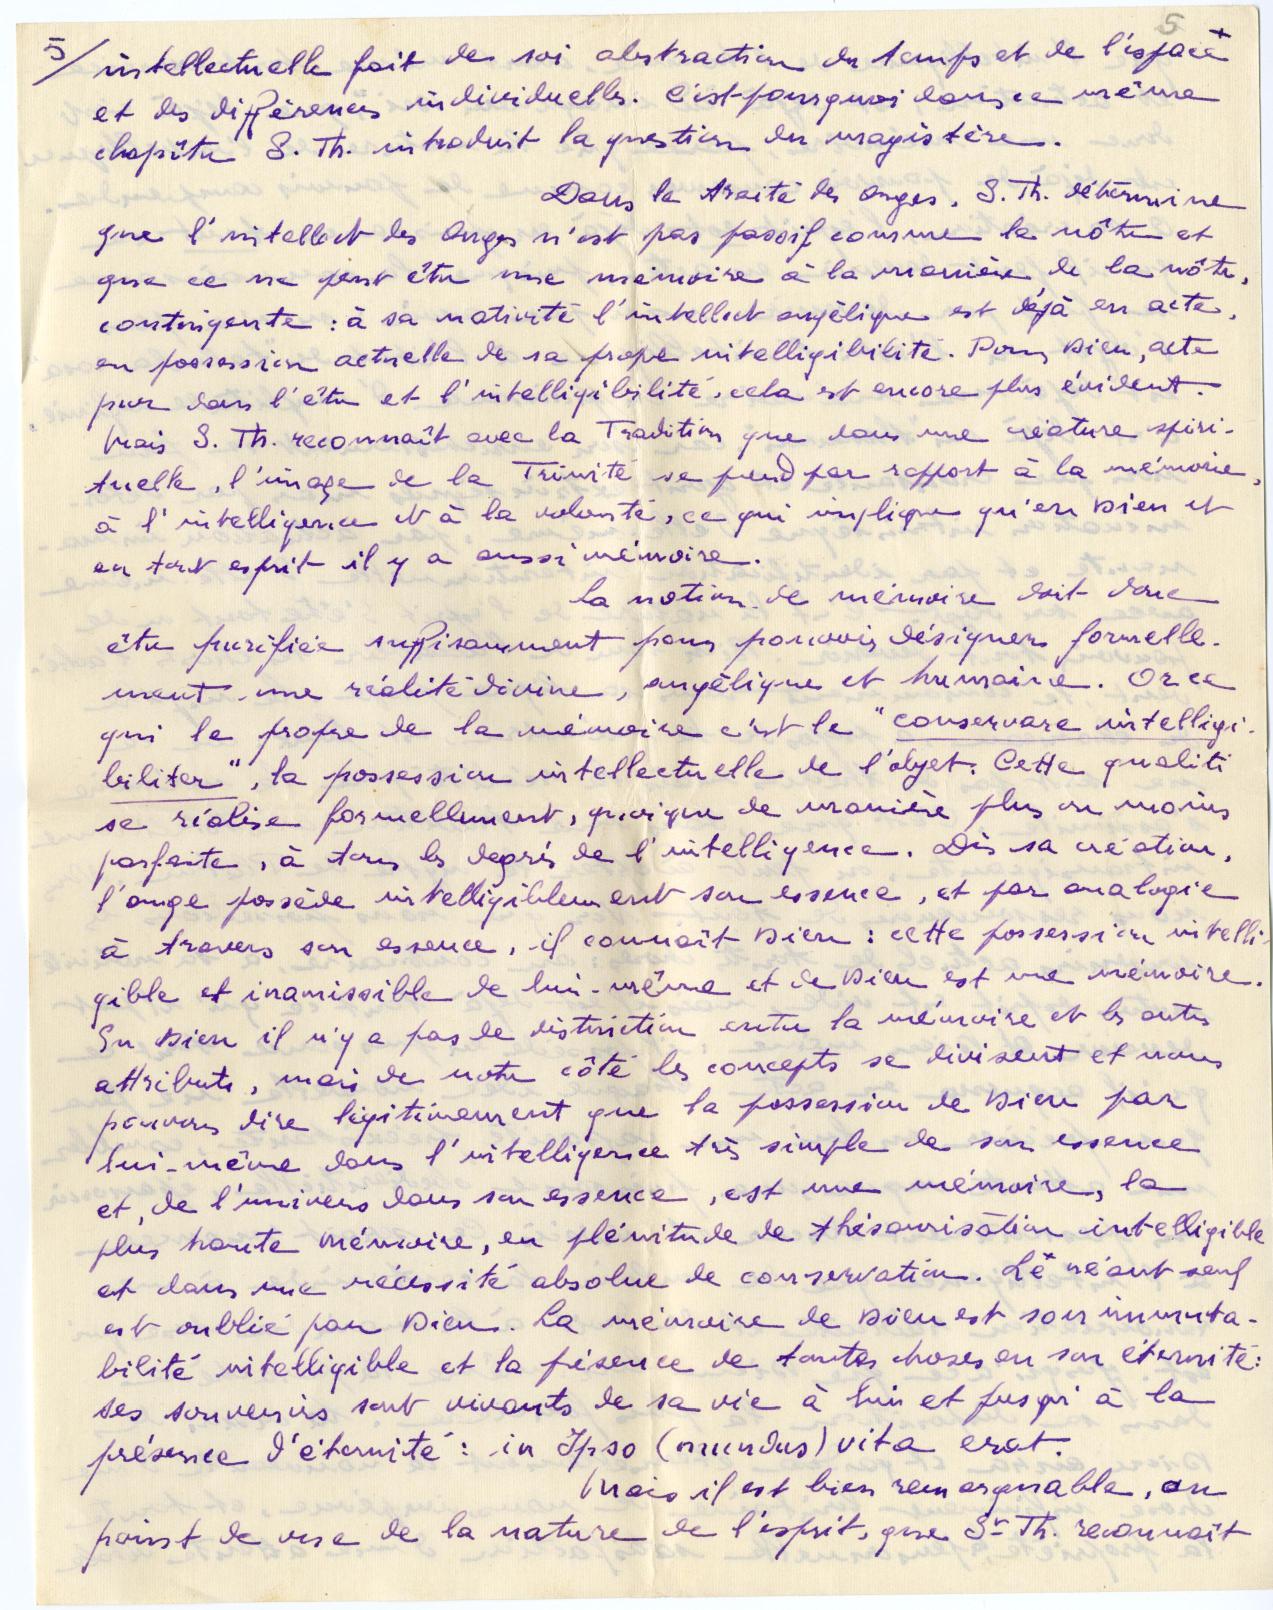 5
5/
intellectuelle fait de soi abstraction du temps et de l'espace +
et des différences individuelles. C'est pourquoi dans ce même
chapitre S. Th. introduit la question du magistère.
Dans le traité des Anges, S. Th. détermine
que l'intellect des Anges n'est pas passif comme le nôtre et
que ce ne peut être une mémoire à la manière de la nôtre,
contingente : à sa nativité l'intellect angélique est déjà en acte,
en possession actuelle de sa propre intelligibilité. Pour Dieu, acte
pur dans l'être et l'intelligibilité, cela est encore plus évident.
Mais S. Th. reconnaît avec la Tradition que dans une créature spiri-
tuelle, l'image de la Trinité se prend par rapport à la mémoire,
à l'intelligence et à la volonté, ce qui implique qu'en Dieu et
en tout esprit il y a aussi mémoire.
La notion de mémoire doit donc
être purifiée suffisamment pour pouvoir désigner formelle-
ment une réalité divine, angélique et humaine. Or ce
qui le propre de la mémoire c'est le "conservare intelligi-
biliter", la possession intellectuelle de l'objet. Cette qualité
se réalise formellement, quoique de manière plus ou moins
parfaite, à tous les degrés de l'intelligence. Dès sa création,
l'ange possède intelligiblement son essence, et par analogie
à travers son essence, il connaît Dieu : cette possession intelli-
gible et inamissible de lui-même et de Dieu est une mémoire.
En Dieu il n'y a pas de distinction entre la mémoire et les autres
attributs, mais de notre côté les concepts se divisent et nous
pouvons dire légitimement que la possession de Dieu par
lui-même dans l'intelligence très simple de son essence
et, de l'univers dans son essence, est une mémoire, la
plus haute mémoire, en plénitude de thésaurisation intelligible
et dans une nécessité absolue de conservation. Le néant seul
est oublié par Dieu. La mémoire de Dieu est son immuta-
bilité intelligible et la présence de toutes choses en son éternité :
ses souvenirs sont vivants de sa vie à lui et jusqu'à la
présence d'éternité : in Ipso (mundus) vita erat.
Mais il est bien remarquable, au
point de vue de la nature de l'esprit, que St Th. reconnaît